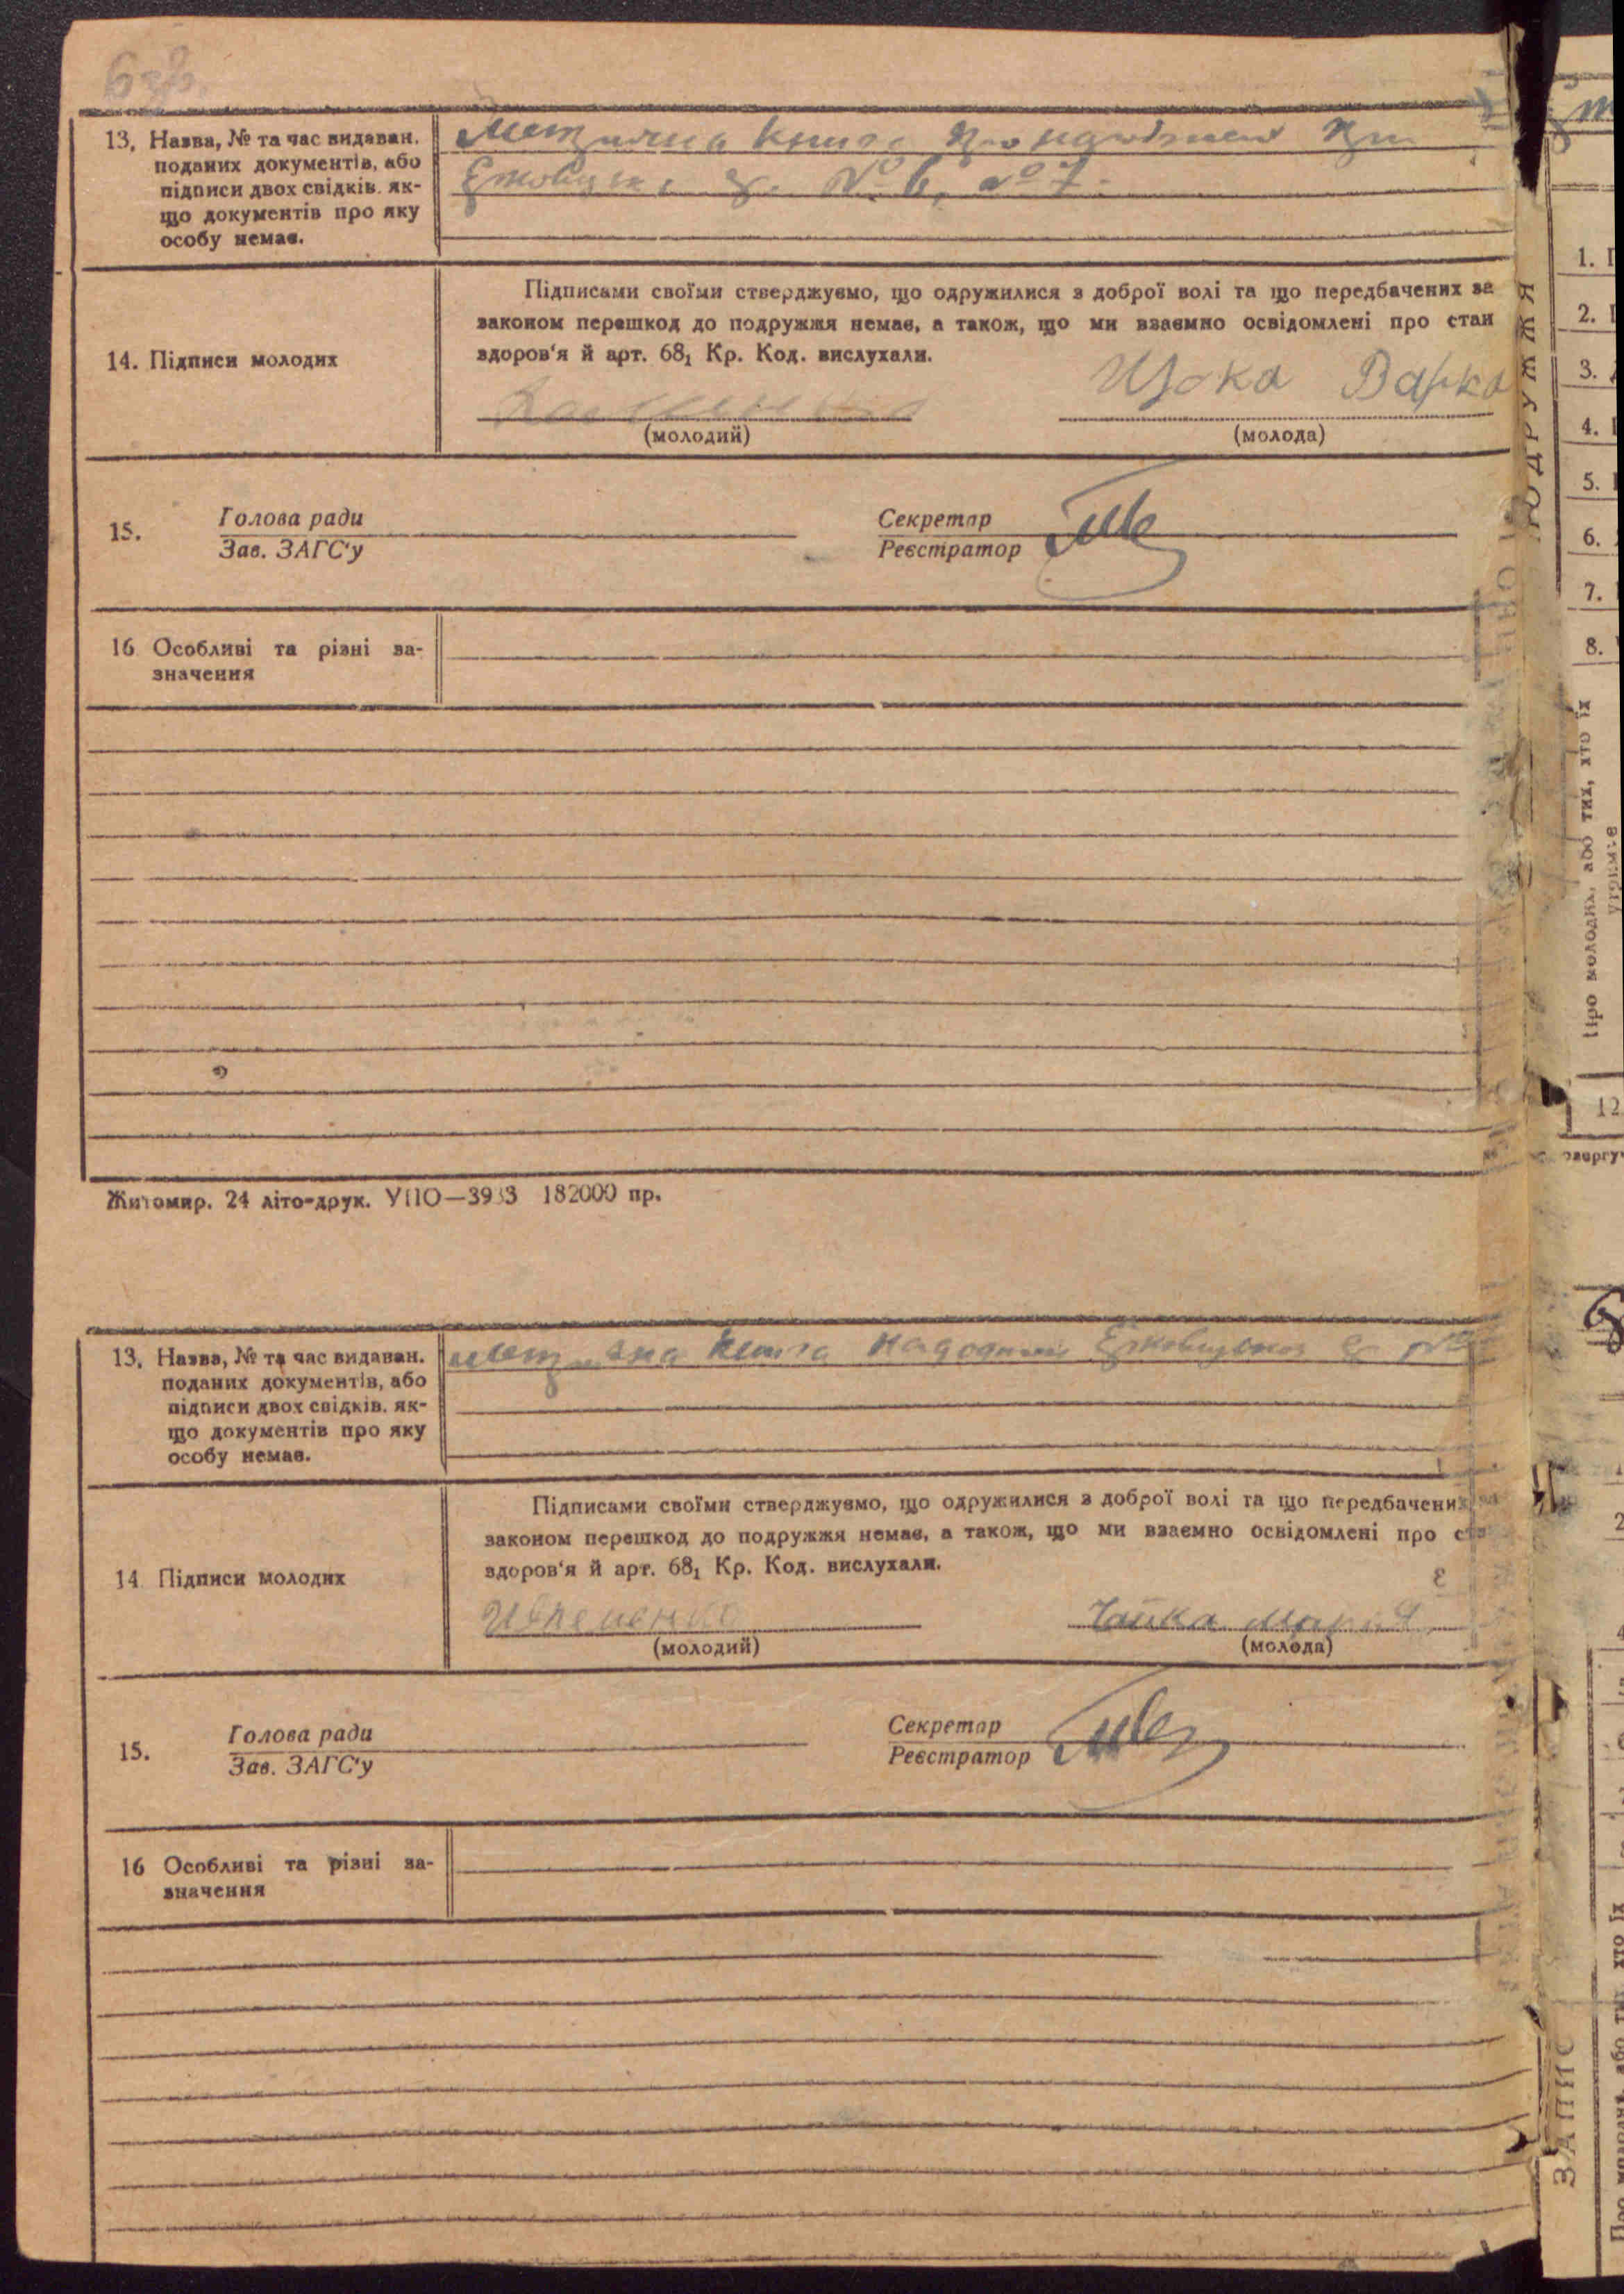 13. Назва, № та час видаван.
поданих документів, або
підписи двох свідків. як-
що документів про яку
особу немає.
книга
№ 6, № 7.
Підписами своїми стверджуємо, що одружилися з доброї волі та що передбачених за
законом перешкод до подружжя немає, а також, що ми взаємно освідомлені про стан
здоров'я й арт. 68₁ Кр. Код. вислухали.
14. Підписи молодих
Варка
(молодий) (молода)
15. Голова ради Секретар
Зав. ЗАГС'у Реєстратор
16 Особливі та різні за-
значення
Житомир. 24 літо-друк. УПО—3933 182000 пр.
13. Назва, № та час видаван.
поданих документів, або
підписи двох свідків. як-
що документів про яку
особу немає.
книга
Підписами своїми стверджуємо, що одружилися з доброї волі та що передбачених
законом перешкод до подружжя немає, а також, що ми взаємно освідомлені про
здоров'я й арт. 68₁ Кр. Код. вислухали.
14 Підписи молодих
Чайка Мария
(молодий) (молода)
15. Голова ради Секретар
Зав. ЗАГС'у Реєстратор
16 Особливі та різні за-
значення
1.
2.
3.
4.
5.
6.
7.
8.
Про молодих, або тих, хто їх
12
ЗАПИС